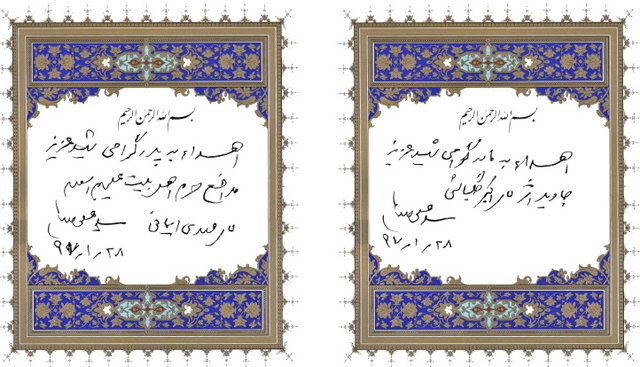 بسم الله الرحمن الرحیم
اهداء به پدر گرامی شهید عزیز
مدافع حرم اهل بیت علیهم السلام
مهدی ایمانی
۹۷/۱/۲۸
بسم الله الرحمن الرحیم
اهداء به مادر گرامی شهید عزیز
جاوید اثر علی اکبر
۹۷/۱/۲۸